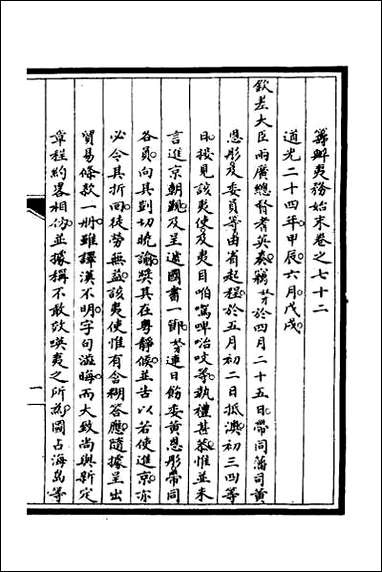 籌辦夷務始末卷之七十二
道光二十四年甲辰六月戊戌
欽差大臣兩廣總督耆英奏竊於四月二十五日帶同藩司黃
恩彤及委員等由省起程於五月初二日抵澳初三四等
日接見該夷使及夷目咱啤咬等執禮甚恭惟並未
言進京朝覲及呈遞國書一節連日飭委黃恩彤帶同
各員向其剴切曉諭奬其在粵靜候並告以若使進京亦
必令其折回徒勞無益該夷使惟有含糊答應隨據呈出
貿易條款一冊雖譯漢不明字句澁晦而大致尚與新定
章程約畧相仿並據稱不敢效嘆夷之所為圖占海島等
一